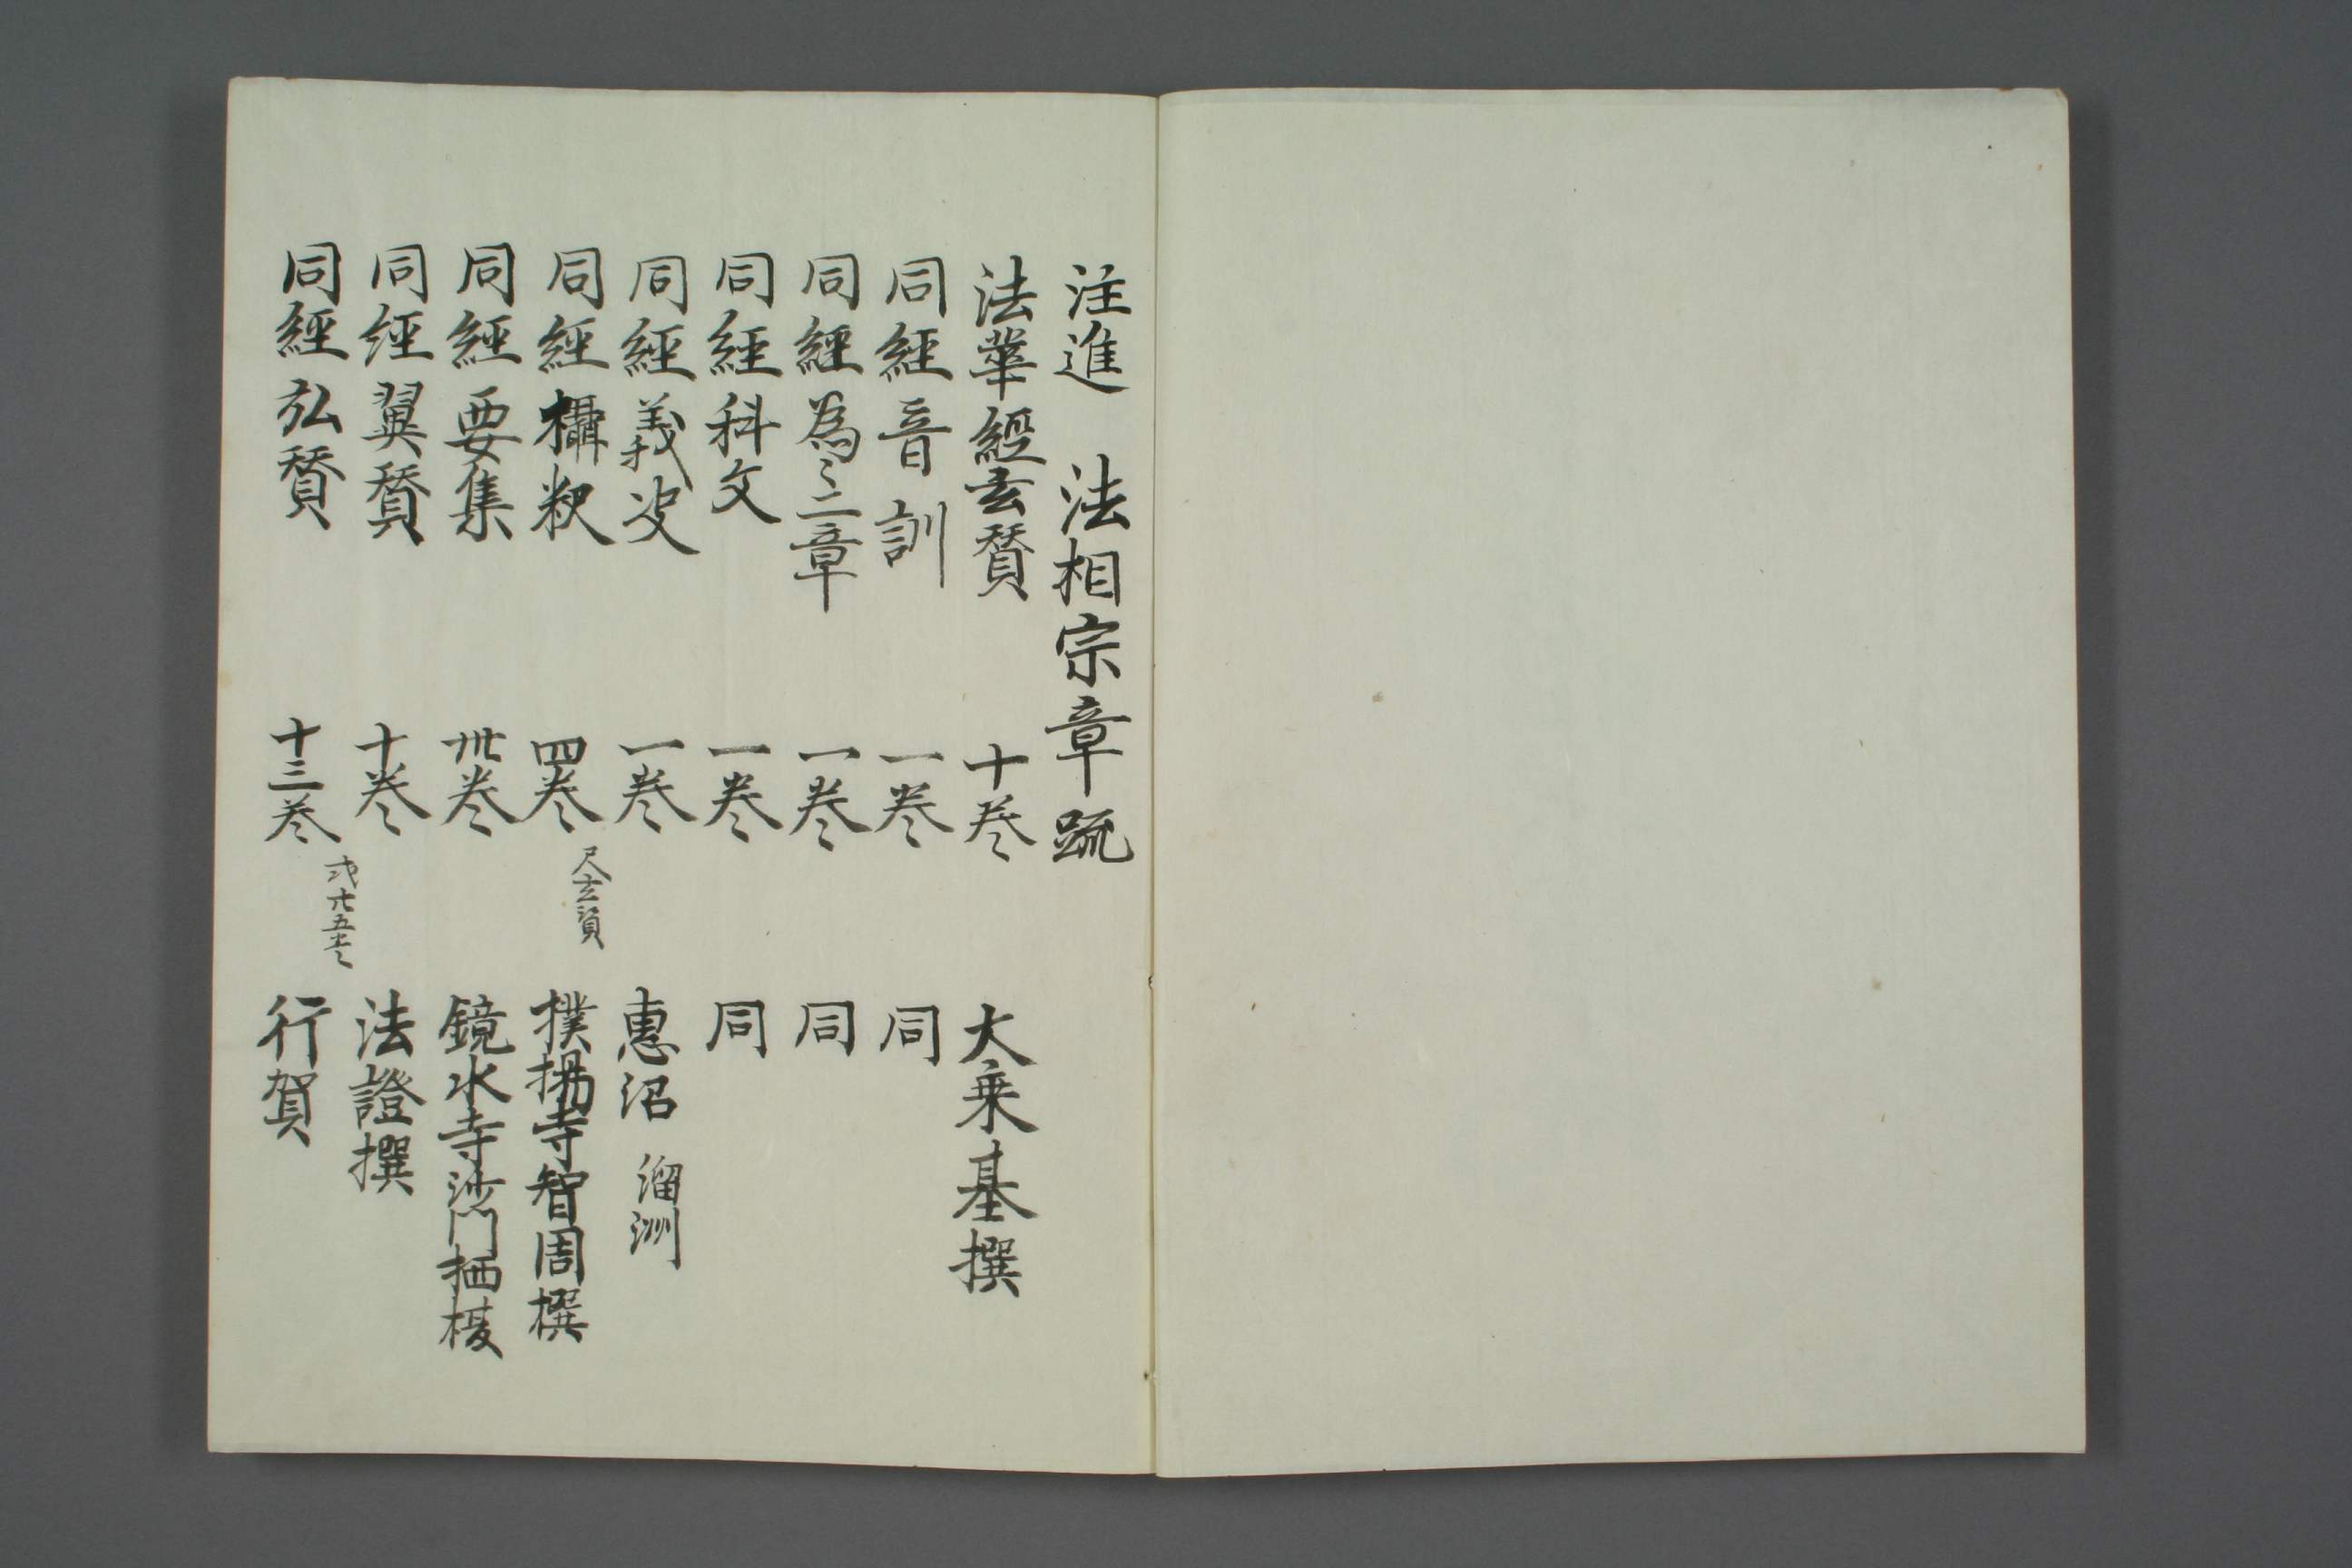 注進 法相宗章疏
法華經玄賛 十巻 大乗基撰
同經音訓 一巻 同
同經為々章 一巻 同
同經科文 一巻 同
同經義決 一巻 惠沼 溜洲
同經攝釈 四巻 尺玄賛 撲揚寺智周撰
同經要集 卅巻 鏡水寺沙門栖榎
同經翼賛 十巻 法證撰
同經弘賛 十三巻 或廿五巻 行賀